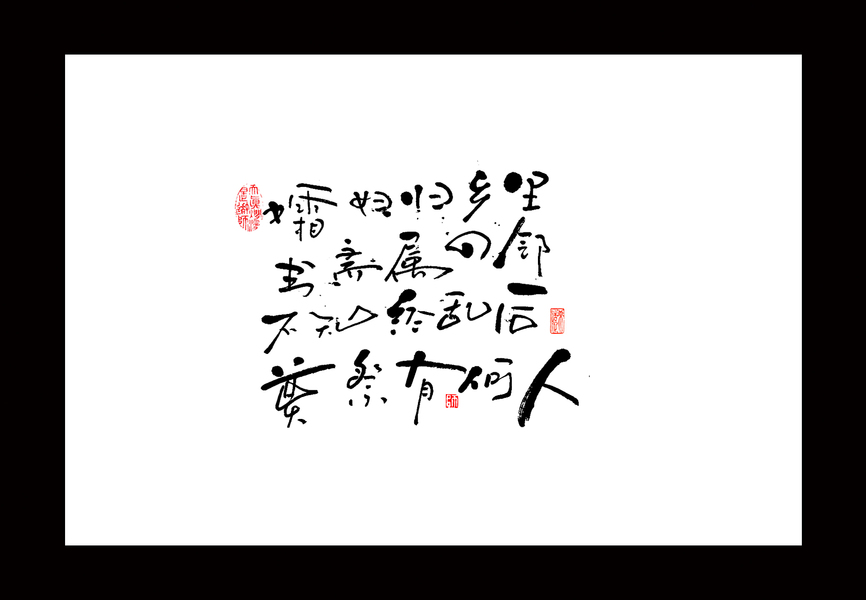 孀妇归乡里
书斋属四邻
不知经乱后
奠祭有何人